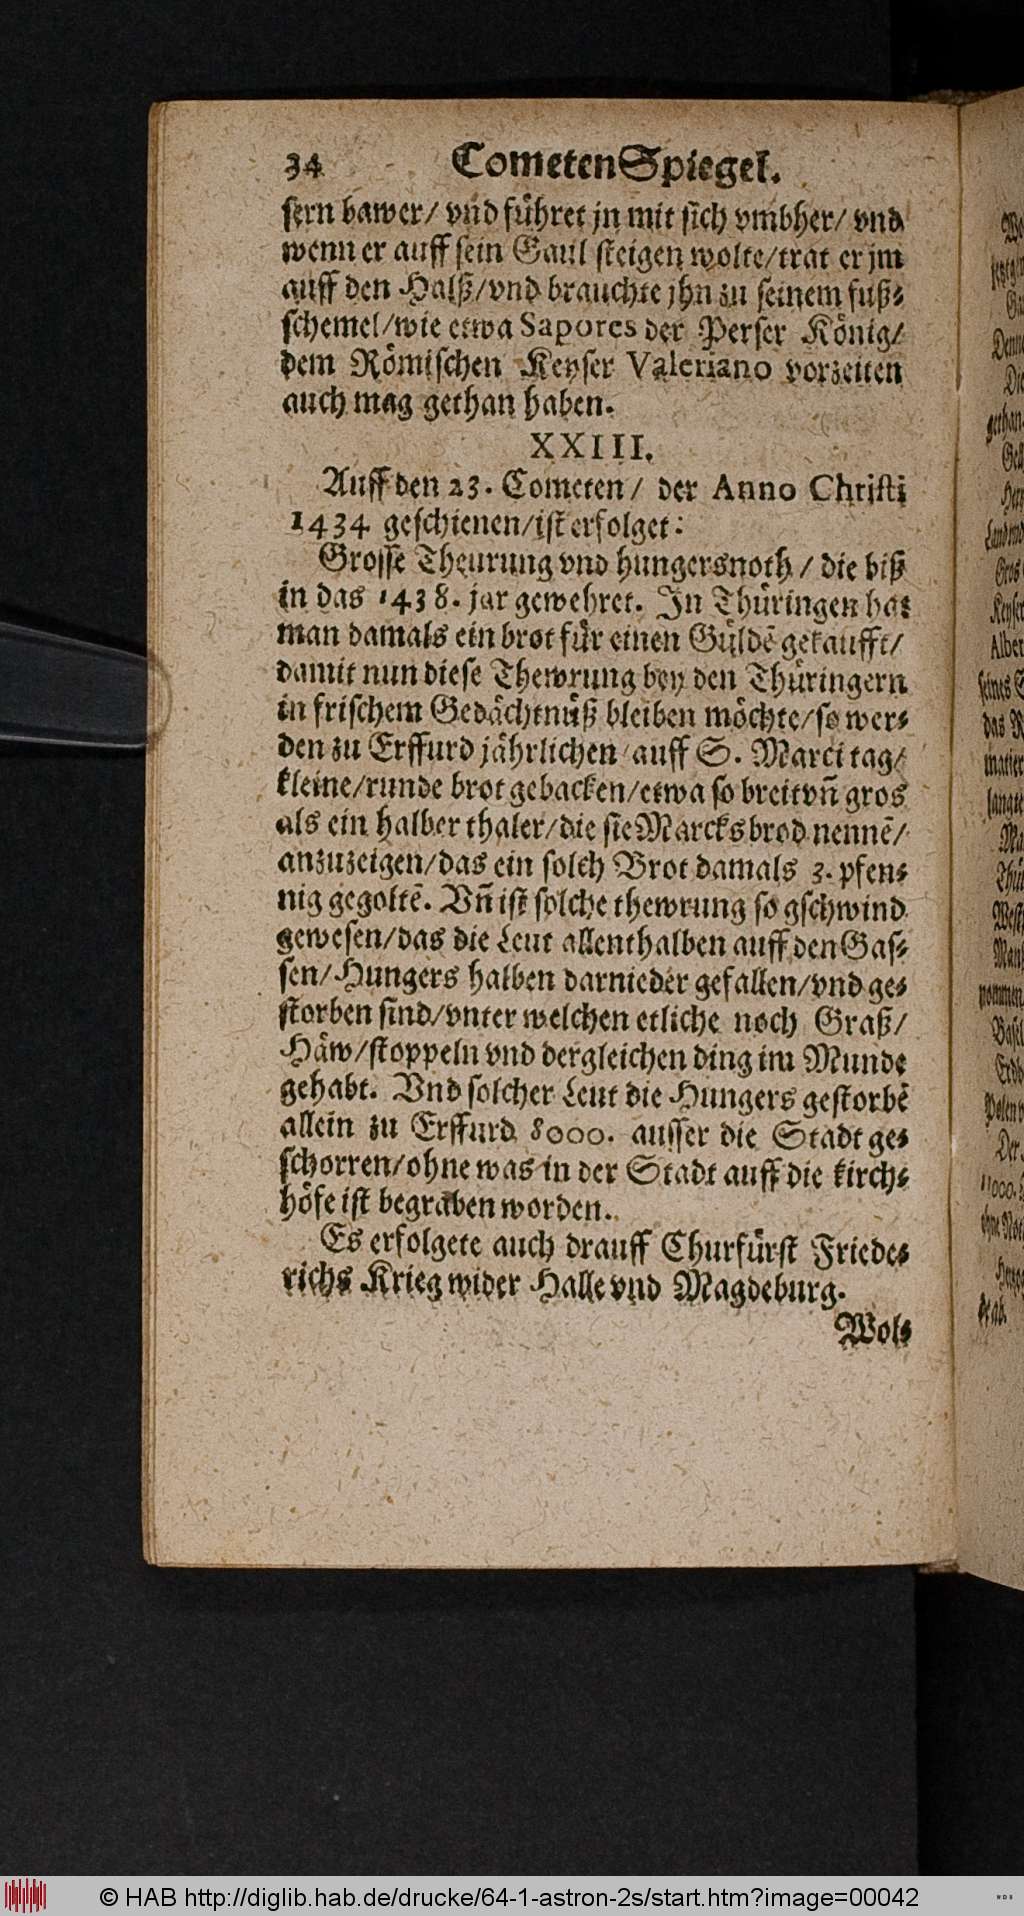 34 CometenSpiegel.
sern bawer/ vnd führet jn mit sich vmbher/ vnd
wenn er auff sein Gaul steigen wolte/trat er jm
auff den Halß/vnd brauchte jhn zu seinem fuß⸗
schemel/wie etwa Sapores der Perser König/
dem Römischen Keyser Valeriano vorzeiten
auch mag gethan haben.
XXIII.
Auff den 23. Cometen/ der Anno Christi
1434 geschienen/ist erfolget:
Grosse Theurung vnd hungersnoth/ die biß
in das 1438. jar gewehret. In Thüringen hat
man damals ein brot für einen Güldē gekaufft/
damit nun diese Thewrung bey den Thüringern
in frischem Gedächtnüß bleiben möchte/so wer⸗
den zu Erffurd jährlichen auff S. Marci tag/
kleine/runde brot gebacken/etwa so breit vn̄ gros
als ein halber thaler/die sie Marcksbrod nennē/
anzuzeigen/das ein solch Brot damals 3. pfen⸗
nig gegoltē. Vn̄ ist solche thewrung so gschwind
gewesen/das die Leut allenthalben auff den Gas⸗
sen/Hungers halben darnieder gefallen/vnd ge⸗
storben sind/vnter welchen etliche noch Graß/
Häw/stoppeln vnd dergleichen ding im Munde
gehabt. Vnd solcher Leut die Hungers gestorbē
allein zu Erffurd 8000. ausser die Stadt ge⸗
schorren/ohne was in der Stadt auff die kirch⸗
höfe ist begraben worden.
Es erfolgete auch drauff Churfürst Friede⸗
richs Krieg wider Halle vnd Magdeburg.
Wol⸗
© HAB http://diglib.hab.de/drucke/64-1-astron-2s/start.htm?image=00042